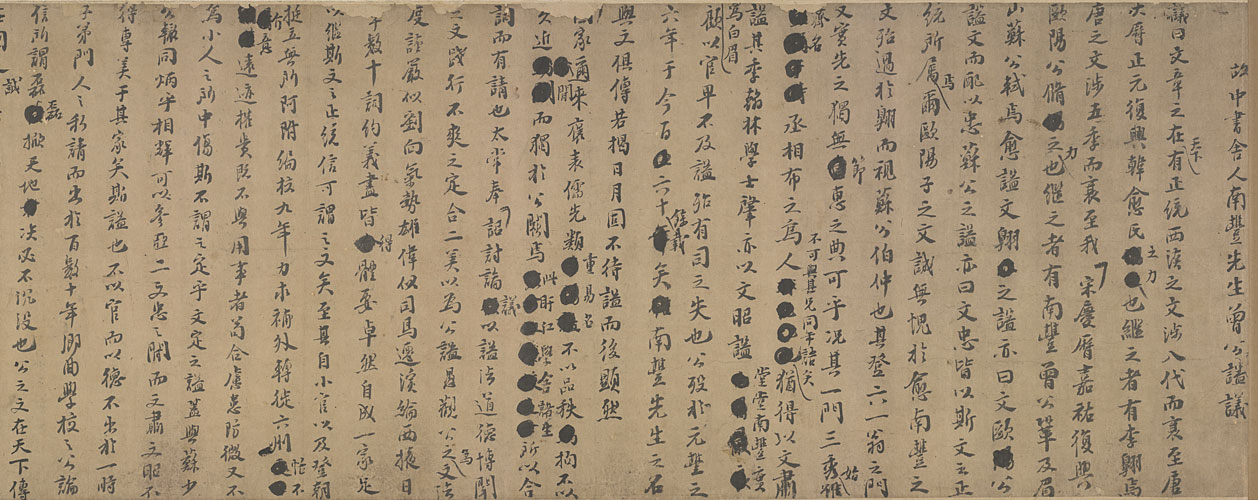 故中書舍人南豐先生曾公謚議
議曰文章之在天下有正統西漢之文涉八代而衰至唐
大曆正元復興韓愈氏之力也繼之者有李翺焉
唐之文涉五季而衰至我宋慶曆嘉祐復興
歐陽公脩之力也繼之者有南豐曾公鞏及眉
山蘇公軾焉愈謚文翺之謚亦曰文歐公
謚文而配以忠蘇公之謚亦曰文忠皆以斯文之正
統所屬焉爾歐陽子之文誠無愧於愈南豐之
文殆過於翺而視蘇公伯仲也其登六一翁之門
又實先之獨無節惠之典可乎況其一門三秀
丞相布之為人不可與其兄同年語矣猶得以文肅
謚其季翰林學士肇亦以文昭謚堂堂南豐實
為白眉顧以官卑不及謚殆有司之失也公歿於元豐之
六年于今百六十載矣南豐先生之名
與文俱傳若揭日月固不待謚而後顯然
國家邇來褒表儒先類重易名不以品秩為拘不以
久近而獨於公闕焉此盱江學舍諸生所以合
詞而有請也太常奉詔討論議以謚法道德博聞
為文踐行不爽之定合二美以為公謚曷觀公之文法
度謹嚴似劉向氣勢雄偉似司馬遷演綸西掖日
草數十詞約義盡皆得體要卓然自成一家足
以繼斯文之正統信可謂之文矣至其自小官以及登朝
挺立無所阿附編校九年力求補外轉徙六州恬不
有意遠迹權貴既不與用事者苟合慮患防微又不
為小人之所中傷斯不謂之定乎文定之謚蓋與蘇少
公轍同炳乎相輝可以參亞二文忠之間而文肅文昭不
得專美于其家矣斯謚也不以官而以德不出於一時
子弟門人之私請而出於百數十年學校之公論
信所謂磊磊掀天地決必不沉没也公之文在天下傳
誠